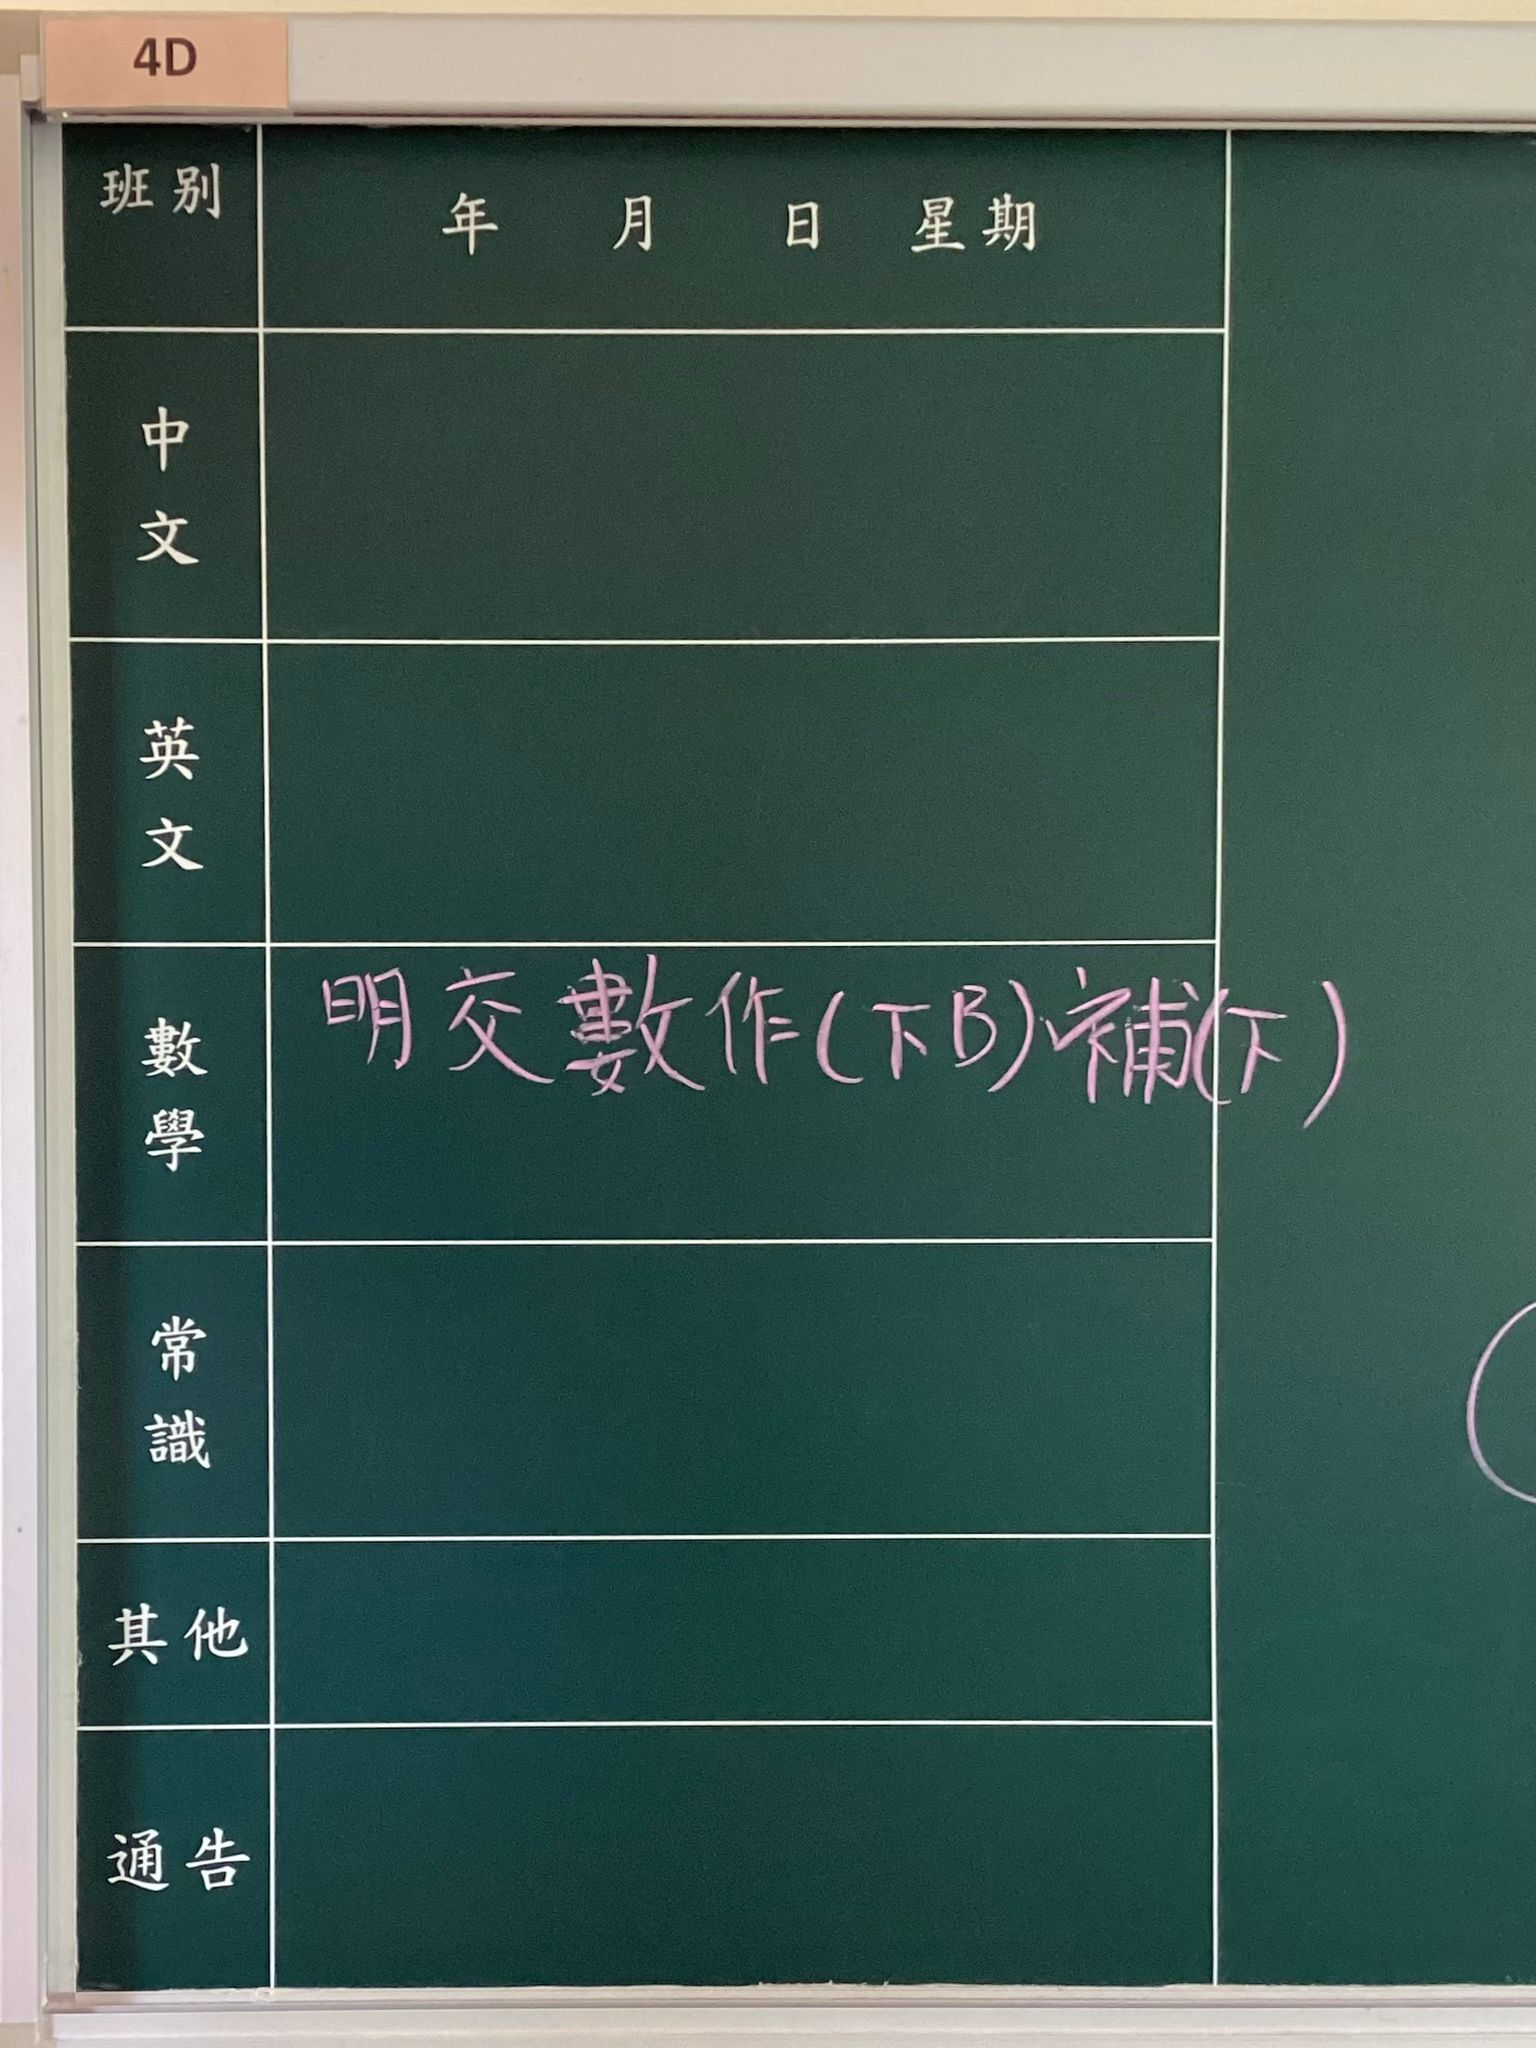 4D
班別
年 月 日 星期
中文
英文
數學
明交數作(下B)、補(下)
常識
其他
通告